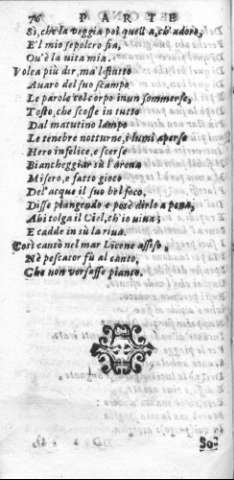 76 PARTE
Sì, che la veggia poi quell'a, ch'adoro,
E'l mio sepolcro sia,
Ou'è la vita mia.
Volea più dir, ma'l flutto
Auaro del suo scampo
Le parole col corpo in un sommerse,
Tosto, che scosse in tutto
Dal mattutino lampo
Le tenebre notturne, i lumi aperse
Hero infelice, e scerse
Biancheggiar sù l'arena
Misero, e fatto gioco
Del'acque il suo bel foco.
Disse piangendo e potè dirlo a pena,
Ahi tolga il Ciel, ch'io viua;
E cadde in sù la riua.
Così cantò nel mar Licone assiso,
Nè pescator fù al canto,
Che non versasse pianto.
So-